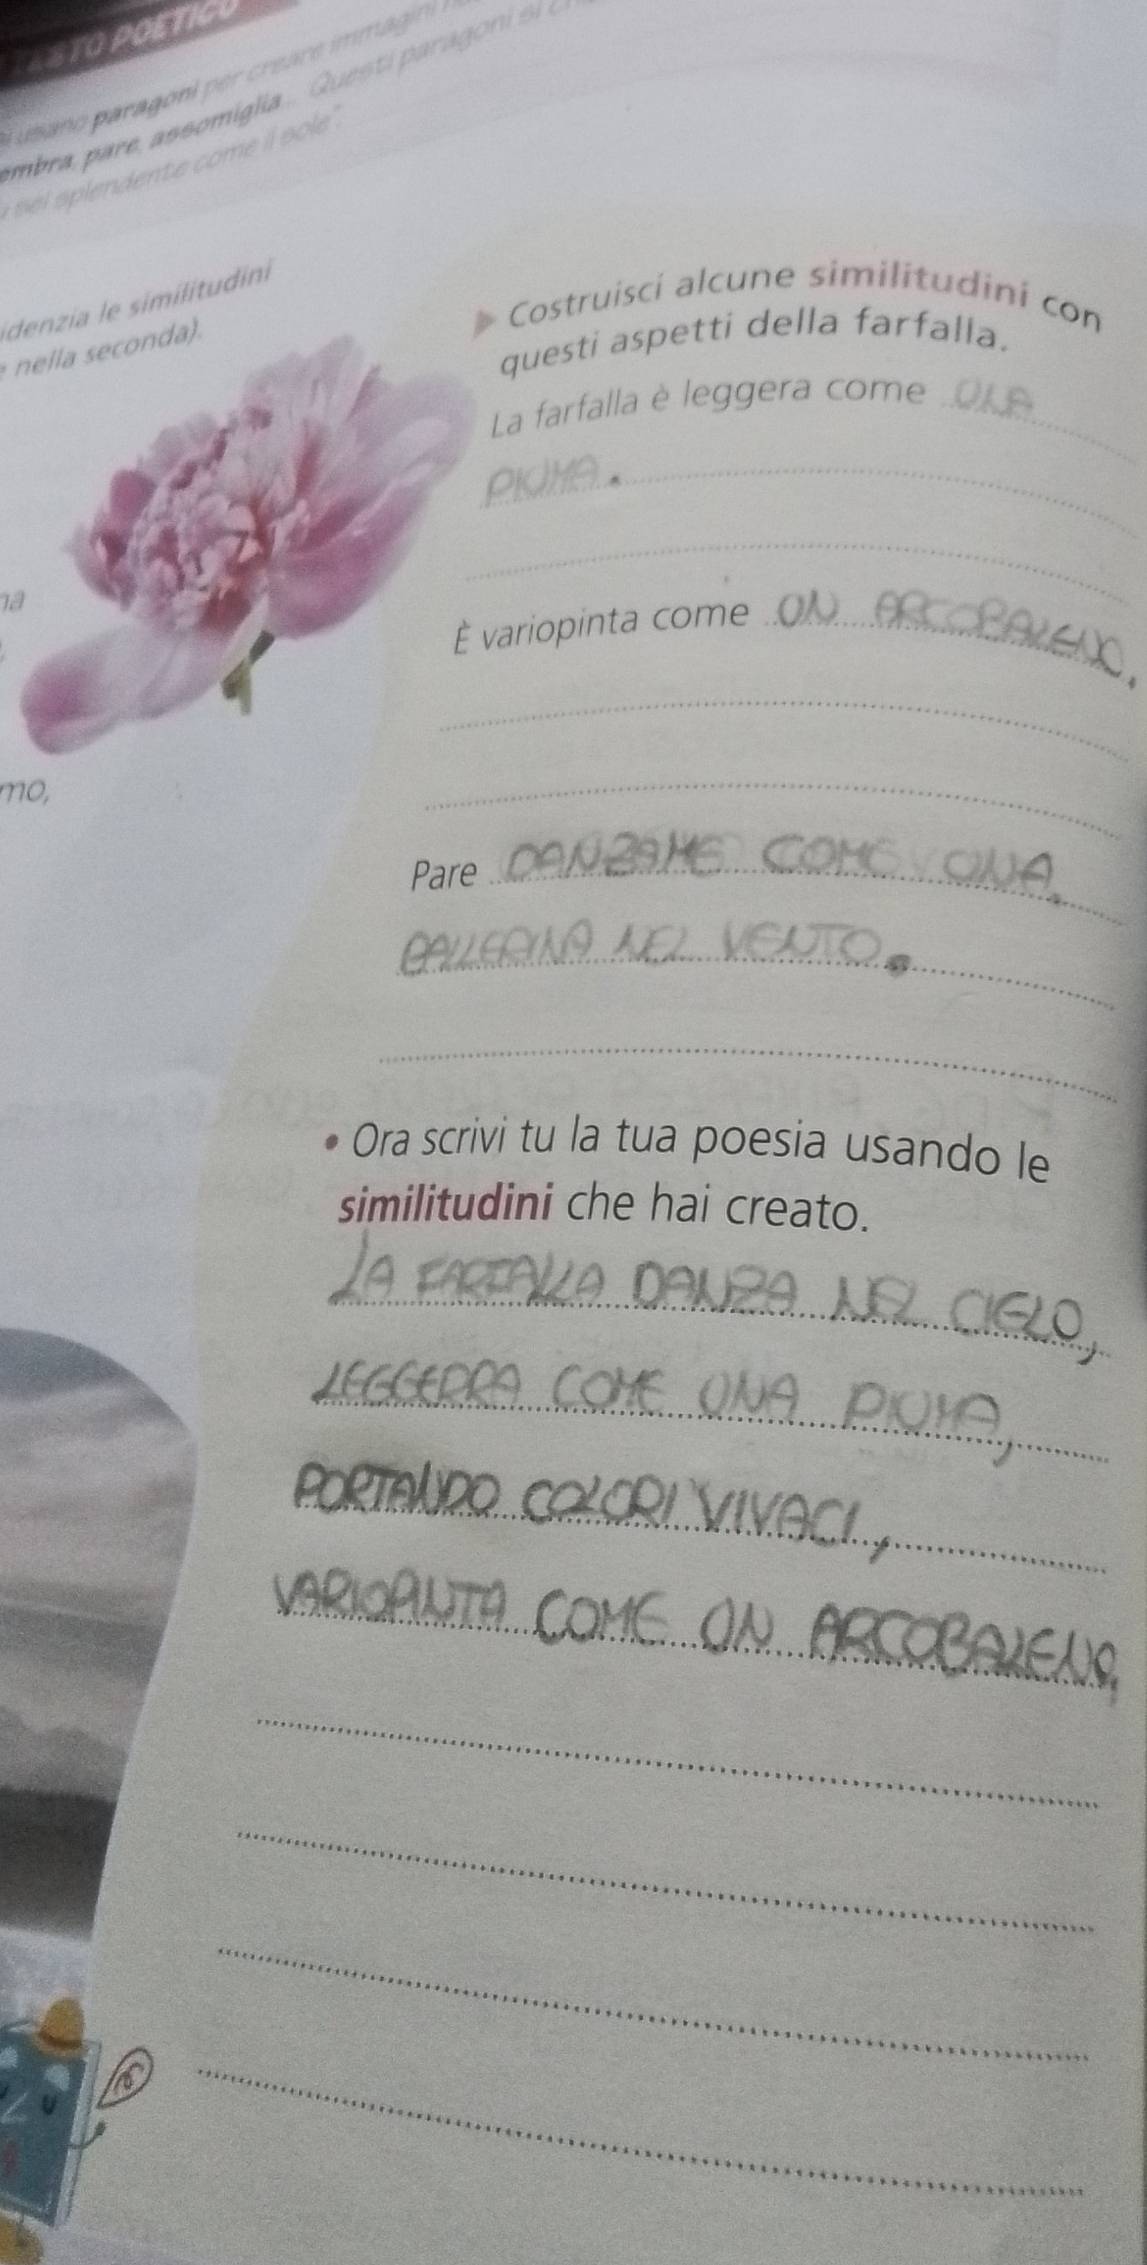 ASTO POETICO
usano paragoni per creare immagini
embra, pare, assomiglia... Questi paragoni si
sei splendente come il sole".
idenzia le similitudini
nella seconda).
Costruisci alcune similitudini con
questi aspetti della farfalla.
La farfalla è leggera come
PIUMA.
È variopinta come UN ARCOBALENO.
Pare DANZARE COME UNA
BALLERINA NEL VENTO.
mo,
• Ora scrivi tu la tua poesia usando le
similitudini che hai creato.
LA FARFALLA DANZA NEL CIELO,
LEGGERRA COME UNA PIUMA,
PORTANDO COLORI VIVACI,
VARIOPINTA COME UN ARCOBALENO,